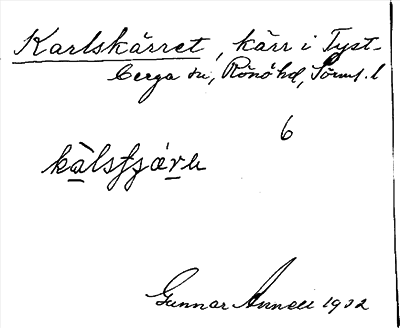 Karlskärret, kärr i Tyst-
berga sn, Rönö hd, Sörml. l
6
kàlsʃʃǽrǝ
Gunnar Annell 1932